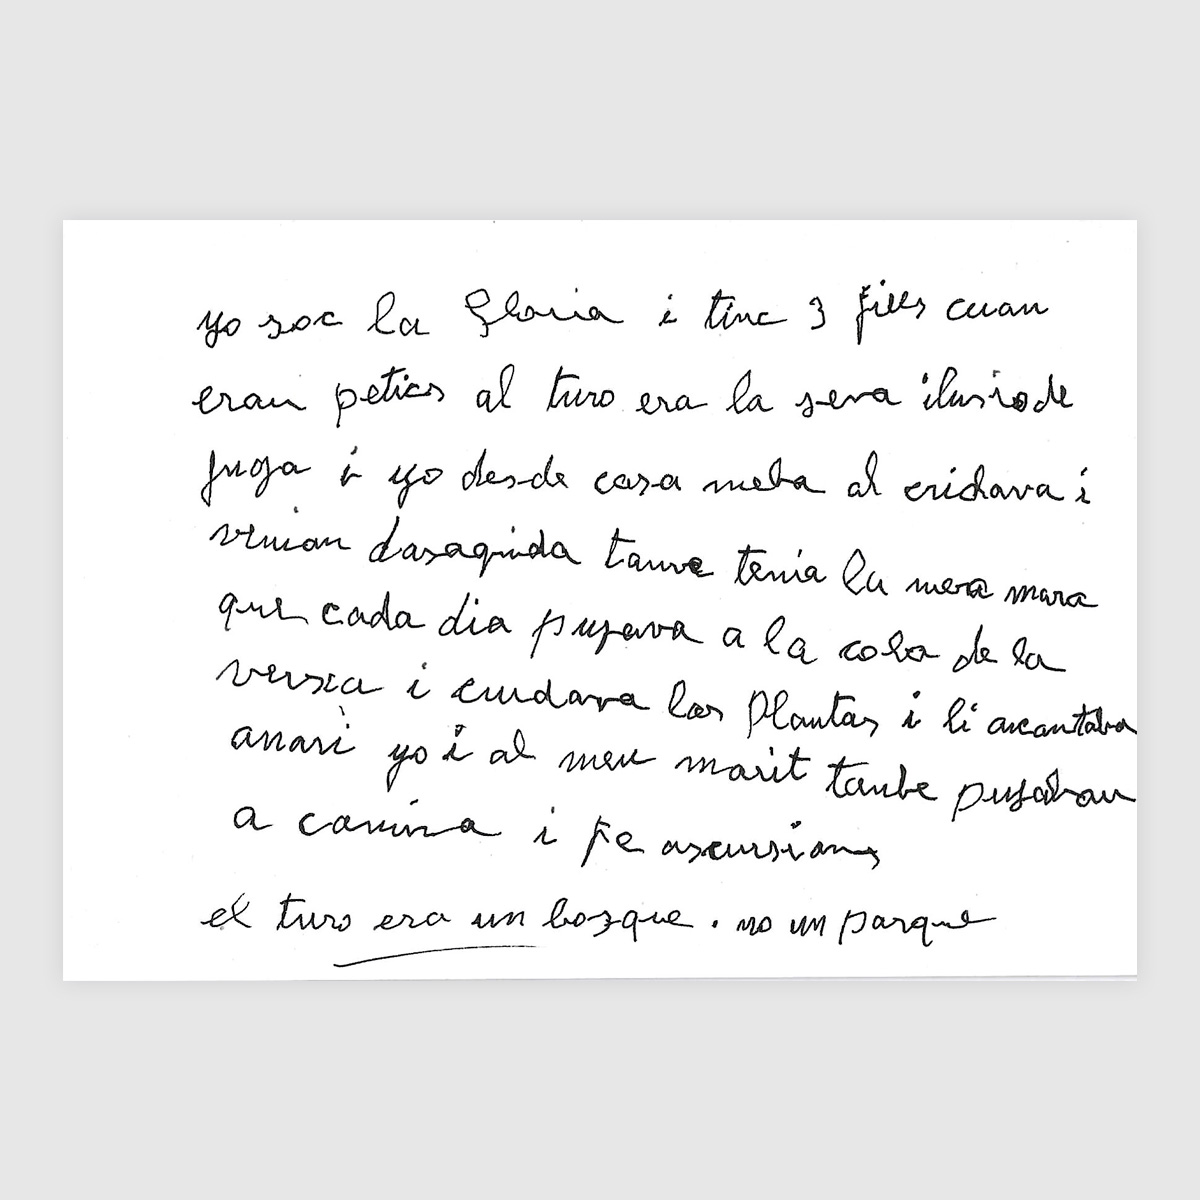 yo soc la Gloria i tinc 3 fills cuan
eran petics al turo era la seva ilusio de
juga i yo desde casa meba al cridava i
venian dasaguida tanve tenia la meva mara
que cada dia pujava a la cola de la
versia i cuidava las plantas i li ancantava
anari yo i al meu marit tanbe pujaban
a camina i fe ascursions
el turo era un bosque. no un parque